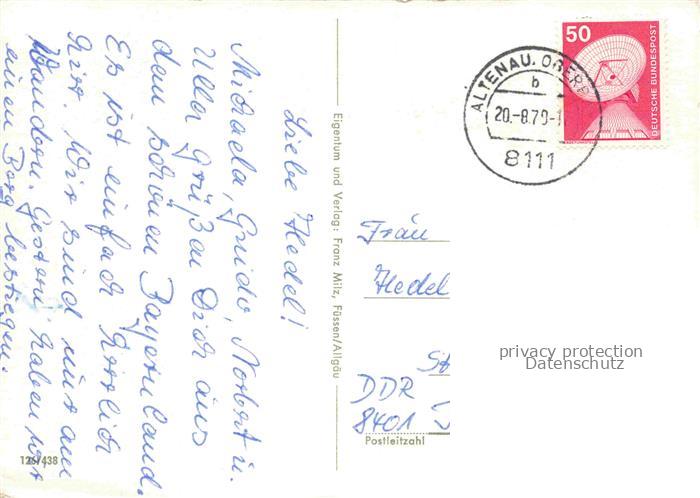 Liebe Hedel!
Michaela, Guido, Norbert u.
Ulla grüßen Dich aus
dem schönen Bayernland.
Es ist einfach herrlich
hier. Wir sind nur am
Wandern. Gestern haben wir
einen Berg bestiegen.
126/438
Eigentum und Verlag: Franz Milz, Füssen/Allgäu
50
DEUTSCHE BUNDESPOST
ALTENAU, OBERB
b
20.-8.79-1
8111
Frau
Hedel
privacy protection
Datenschutz
DDR
8401
Postleitzahl